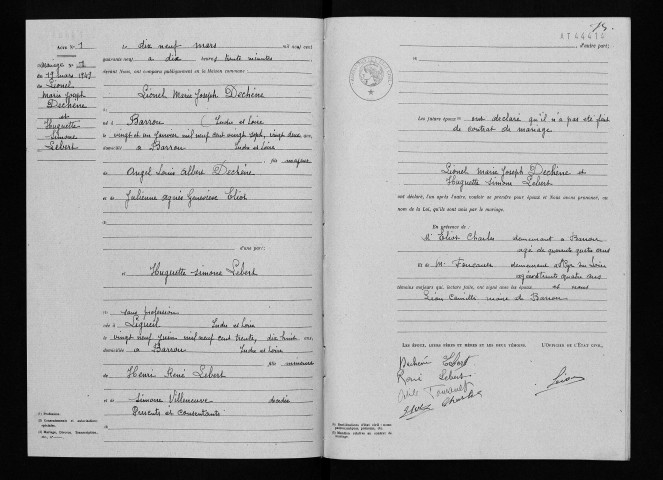 Acte N° 1
Mariage N° 1
du 19 mars 1949
de Lionel
Marie Joseph
Dechène
et
Huguette
Simone
Lebert
Le dix neuf mars mil neuf cent
quarante neuf à dix heures trente minutes
devant Nous, ont comparu publiquement en la Maison commune :
Lionel Marie Joseph Dechène
né à Barrou (Indre et Loire
le vingt et un janvier mil neuf cent vingt sept, vingt deux ans,
domicilié à Barrou Indre et Loire
fils majeur
de Angel Louis Albert Dechène
et Julienne Agnès Geneviève Eliot
d'une part;
et Huguette Simone Lebert
sans profession
née à Ligueil Indre et Loire
le vingt neuf juin mil neuf cent trente, dix huit ans,
domiciliée à Barrou Indre et Loire
fille mineure
de Henri René Lebert
et Simone Villeneuve décédée
Présents et consentants
(1) Profession.
15.
AT44674
d'autre part;
Les futurs époux ont déclaré qu'il n'a pas été fait
de contrat de mariage
Lionel Marie Joseph Dechène et
Huguette Simone Lebert
ont déclaré, l'un après l'autre, vouloir se prendre pour époux et Nous avons prononcé, au
nom de la Loi, qu'ils sont unis par le mariage.
En présence de
Mr Eliot Charles demeurant à Barrou
âgé de quarante quatre ans
Et de Mr Foucault demeurant
trente quatre ans
témoins majeurs qui, lecture faite, ont signé avec les époux et nous
Camille maire de Barrou
Les époux, leurs pères et mères et les deux témoins. L'Officier de l'État civil,
Dechène Lebert
René Lebert
Foucault
Eliot Charles